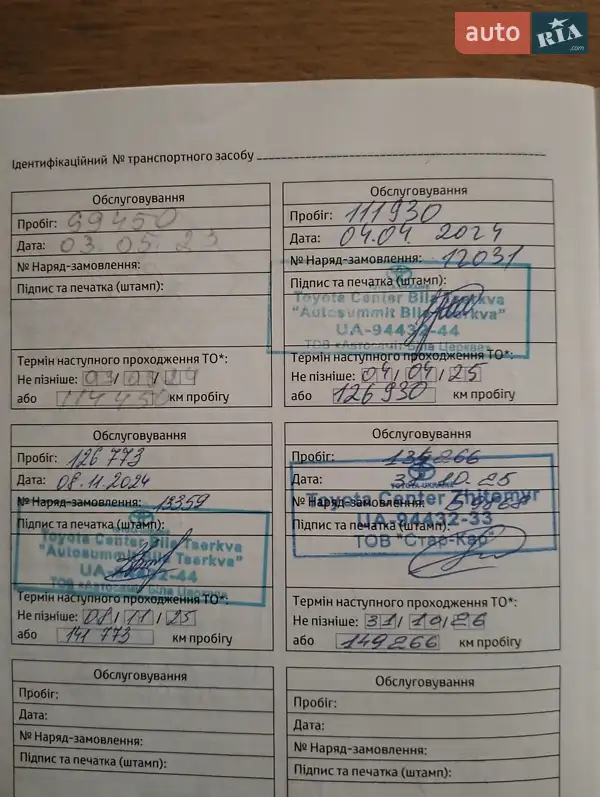 auto RIA .com
Ідентифікаційний № транспортного засобу
Обслуговування
Пробіг: 99450
Дата: 03.05.23
№ Наряд-замовлення:
Підпис та печатка (штамп):
Термін наступного проходження ТО*:
Не пізніше: 03/05/24
або 114450 км пробігу
Обслуговування
Пробіг: 111930
Дата: 04.04. 2024
№ Наряд-замовлення: 12031
Підпис та печатка (штамп):
Toyota Center Bila Tserkva
"Autosummit Bila Tserkva"
UA-94432-44
ТОВ «Автосаміт Біла Церква»
Термін наступного проходження ТО*:
Не пізніше: 04/04/25
або 126930 км пробігу
Обслуговування
Пробіг: 126 773
Дата: 08.11.2024
№ Наряд-замовлення: 13359
Підпис та печатка (штамп):
Toyota Center Bila Tserkva
"Autosummit Bila Tserkva"
UA-94432-44
ТОВ «Автосаміт Біла Церква»
Термін наступного проходження ТО*:
Не пізніше: 08/11/25
або 141 773 км пробігу
Обслуговування
Пробіг: 134266
Дата: 31.10.25
№ Наряд-замовлення:
TOYOTA-UKRAINE
Toyota Center Zhitomyr
UA-94432-33
Підпис та печатка (штамп):
ТОВ "Стар-Кар"
Термін наступного проходження ТО*:
Не пізніше: 31/10/26
або 149266 км пробігу
Обслуговування
Пробіг:
Дата:
№ Наряд-замовлення:
Підпис та печатка (штамп):
Обслуговування
Пробіг:
Дата:
№ Наряд-замовлення:
Підпис та печатка (штамп):